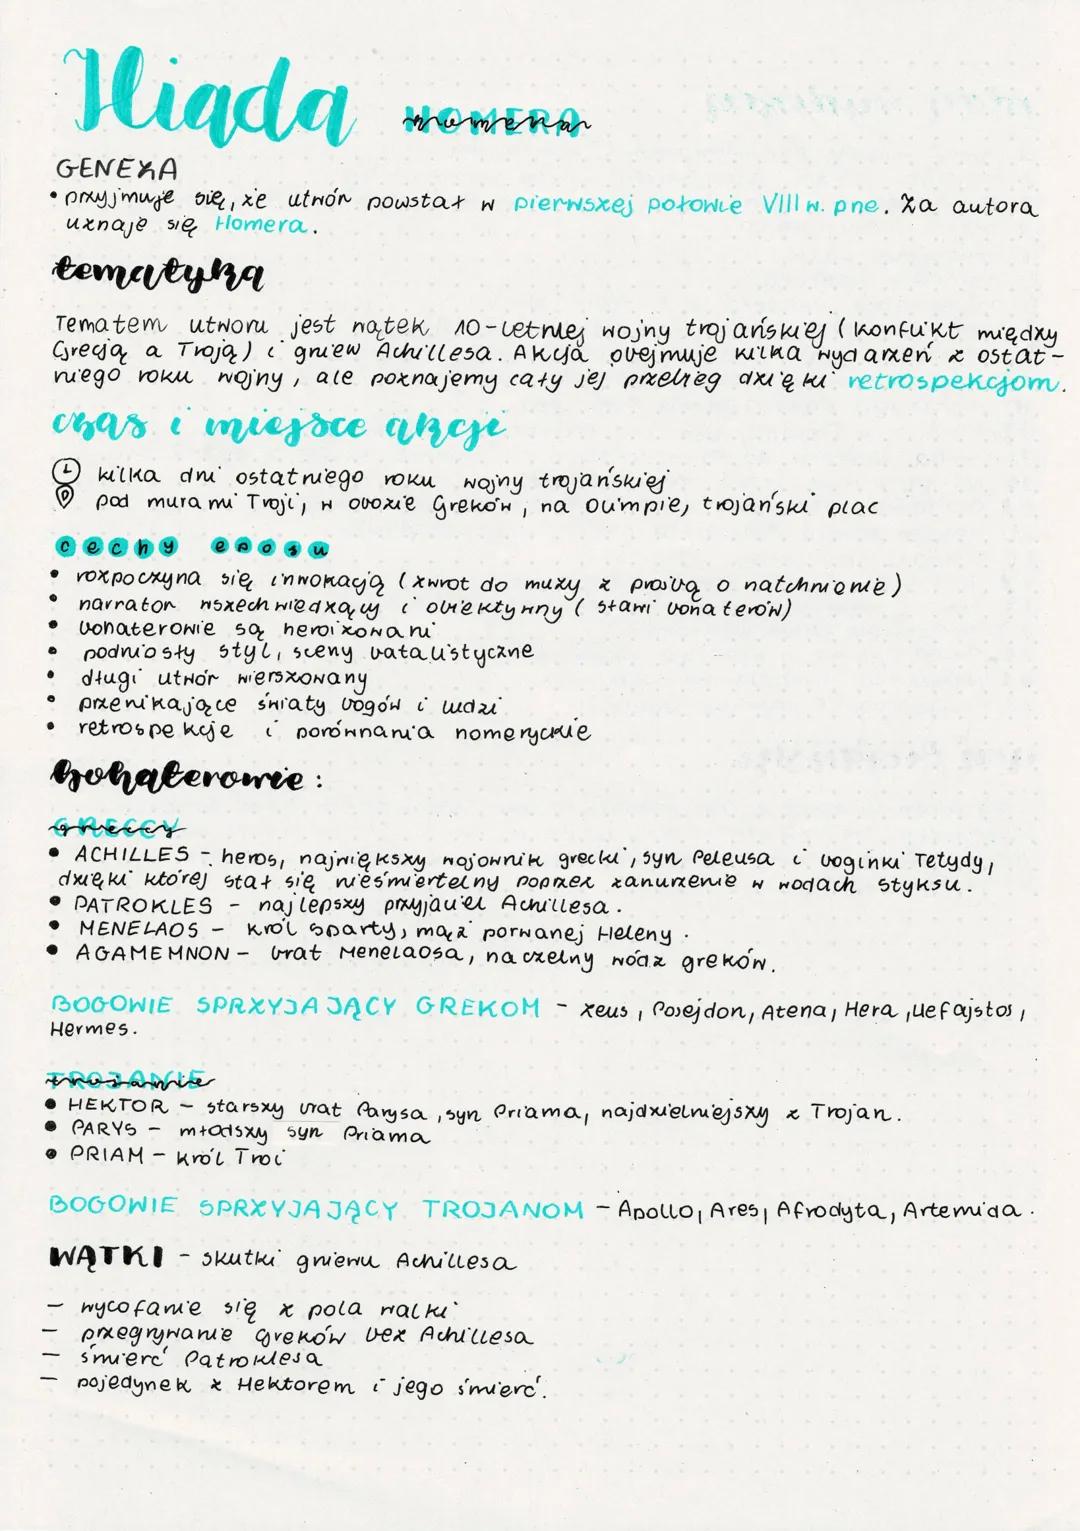 Iliada HOMERA homera
GENEZA
• przyjmuje się, że utwór powstał w pierwszej połowie VIII w. pne. Za autora
uznaje się Homera.
tematyka
Tematem utworu jest wątek 10-letniej wojny trojańskiej (konflikt między
Grecją a Troją) i gniew Achillesa. Akcja obejmuje kilka wydarzeń z ostat-
niego roku wojny, ale poznajemy cały jej przebieg dzięki retrospekcjom.
czas i miejsce akcji
kilka dni ostatniego roku wojny trojańskiej
pod murami Troji, w obozie Greków, na Olimpie, trojański plac
cechy eposu
• rozpoczyna się inwokacją (zwrot do muzy z prośbą o natchnienie)
• narrator wszechwiedzący i obiektywny (sławi bohaterów)
• bohaterowie są heroizowani
• podniosły styl, sceny batalistyczne
• długi utwór wierszowany
• przenikające światy bogów i ludzi
• retrospekcje i porównania homeryckie
bohaterowie:
GRECCY greccy
• ACHILLES - heros, największy wojownik grecki, syn Peleusa i boginki Tetydy,
dzięki której stał się nieśmiertelny poprzez zanurzenie w wodach styksu.
• PATROKLES - najlepszy przyjaciel Achillesa.
• MENELAOS - król sparty, mąż porwanej Heleny.
• AGAMEMNON - brat Menelaosa, naczelny wódz greków.
BOGOWIE SPRZYJAJĄCY GREKOM - zeus, Posejdon, Atena, Hera, Hefajstos,
Hermes.
TROJANIE trojanie
• HEKTOR - starszy brat Parysa, syn Priama, najdzielniejszy z Trojan.
• PARYS - młodszy syn Priama
• PRIAM - król Troi
BOGOWIE SPRZYJAJĄCY TROJANOM - Apollo, Ares, Afrodyta, Artemida.
WĄTKI - skutki gniewu Achillesa
- wycofanie się z pola walki
- przegrywanie greków bez Achillesa
- śmierć Patroklesa
- pojedynek z Hektorem i jego śmierć.